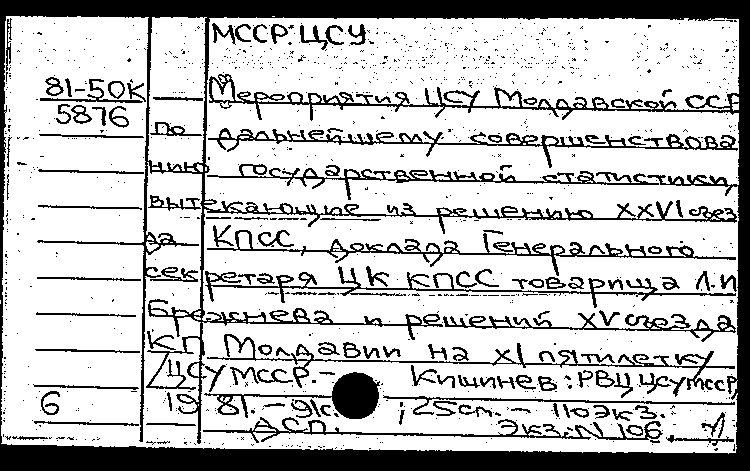 МССР. ЦСУ.
81-50К
5876
Мероприятия ЦСУ Молдавской ССР
по дальнейшему совершенствова
нию государственной статистики,
вытекающие из решению XXVI съез
да КПСС, доклада Генерального
секретаря ЦК КПСС товарища Л.И
Брежнева и решений XV съезда
КП Молдавии на XI пятилетку
/ЦСУ МССР.- Кишинев: РВЦ ЦСУ МССР
6 1981. - 91с. ; 25см. - 110экз.
ДСП. Экз. N 106.